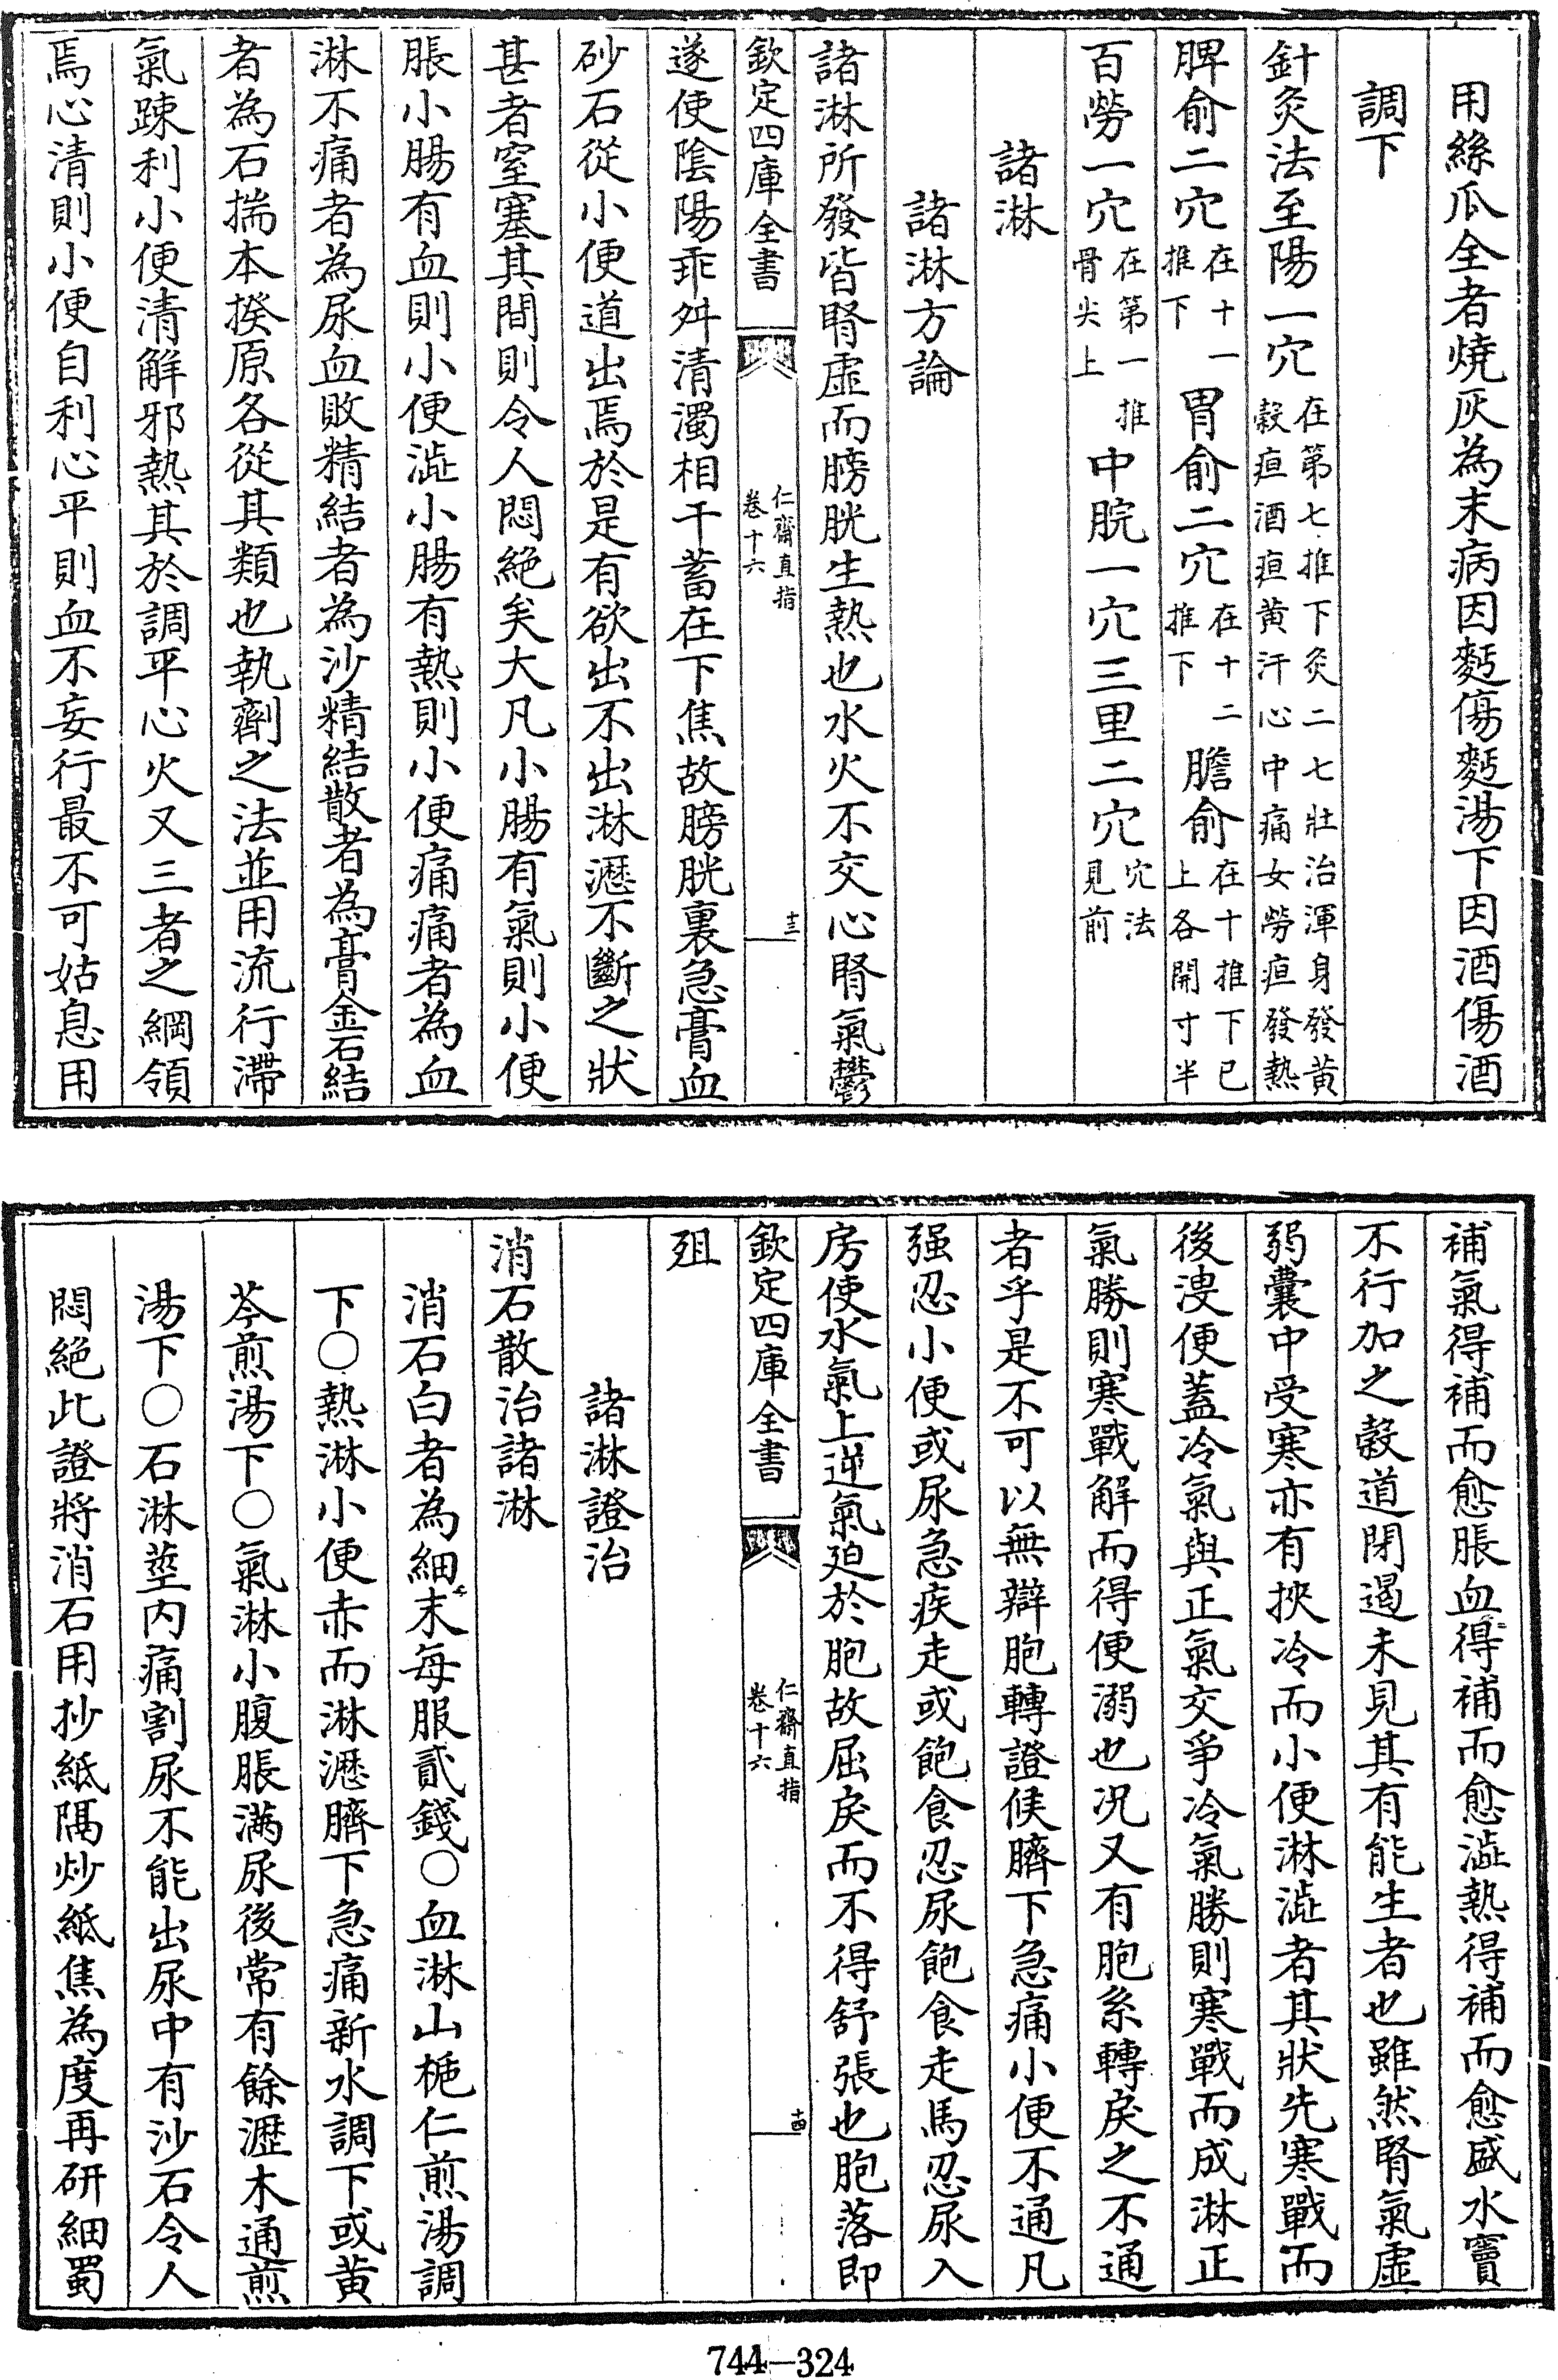 用絲瓜全者燒灰為末病因麪傷麪湯下因酒傷酒
調下
針灸法至陽一穴在第七推下灸二七壯治渾身發黃穀疸酒疸黃汗心中痛女勞疸發熱
脾俞二穴在十一推下胃俞二穴在十二推下膽俞在十推下已上各開寸半
百勞一穴在第一推骨尖上中脘一穴三里二穴穴法見前
諸淋
諸淋方論
諸淋所發皆腎虛而膀胱生熱也水火不交心腎氣鬱
欽定四庫全書
仁齋直指
卷十六
十三
遂使陰陽乖舛清濁相干蓄在下焦故膀胱裏急膏血
砂石從小便道出焉於是有欲出不出淋瀝不斷之狀
甚者窒塞其間則令人悶絶矣大凡小腸有氣則小便
脹小腸有血則小便澁小腸有熱則小便痛痛者為血
淋不痛者為尿血敗精結者為沙精結散者為膏金石結
者為石揣本揆原各從其類也執劑之法並用流行滯
氣踈利小便清解邪熱其於調平心火又三者之綱領
焉心清則小便自利心平則血不妄行最不可姑息用
補氣得補而愈脹血得補而愈澁熱得補而愈盛水竇
不行加之穀道閉遏未見其有能生者也雖然腎氣虛
弱囊中受寒亦有挾冷而小便淋澁者其狀先寒戰而
後溲便蓋冷氣與正氣交爭冷氣勝則寒戰而成淋正
氣勝則寒戰解而得便溺也况又有胞系轉戾之不通
者乎是不可以無辯胞轉證候臍下急痛小便不通凡
强忍小便或尿急疾走或飽食忍尿飽食走馬忍尿入
房使水氣上逆氣廹於胞故屈戾而不得舒張也胞落即
欽定四庫全書
仁齋直指
卷十六
十四
殂
諸淋證治
消石散治諸淋
消石白者為細末每服貳錢○血淋山梔仁煎湯調
下○熱淋小便赤而淋瀝臍下急痛新水調下或黃
芩煎湯下○氣淋小腹脹滿尿後常有餘瀝木通煎
湯下○石淋莖內痛割尿不能出尿中有沙石令人
悶絶此證將消石用抄紙隔炒紙焦為度再研細蜀
744—324